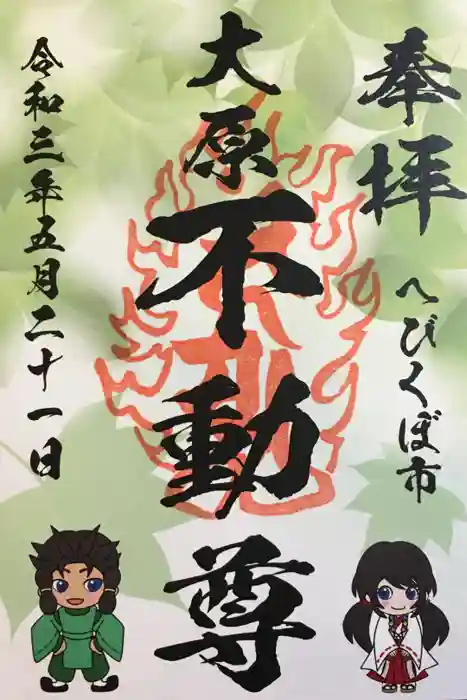 奉拝
へびくぼ市
大原不動尊
令和三年五月二十一日